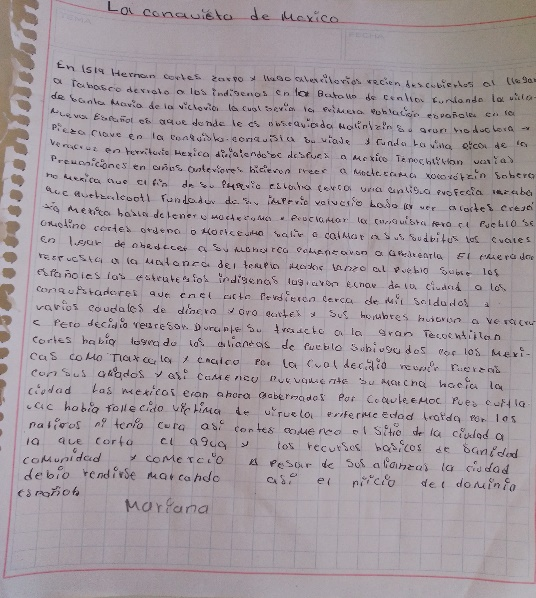 La conquista de Mexico
En 1519 Hernan cortes zarpo y llego a territorios recien descubiertos al llegar
a Tabasco derroto a los indigenas en la Batalla de centla fundando la villa
de santa Maria de la victoria la cual seria la primera Poblacion española en la
Nueva España es aque donde le es obsequiada Malintzin su gran traductora y
Pieza clave en la conquista conquista su viaje y funda la villa rica de la
Veracruz en territorio Mexica dirigiendose despues a Mexico Tenochtitlan varias
Premoniciones en años anteriores hicieron creer a Moctezuma xocoyotzin sobera
no mexica que el fin de su imperio estaba cerca una antigua profecia rezaba
que quetzalcoatl fundador de su imperio volveria bajo ver a cortes creia
a Mexico hasta detener a Moctezuma y Proclamar la conquista pero el Pueblo se
amotino cortes ordeno a Moctezuma salir a calmar a sus subditos los cuales
en lugar de obedecer a su monarca comenzaron a apedrearla El
respuesta a la Matanza del templo mayor lanzo al Pueblo sobre los
españoles las estrategias indigenas lograron echar de la ciudad a los
conquistadores que en el acto Perdieron cerca de mil soldados y
varios caudales de dinero y oro cortes y sus hombres huyeron a veracru
z Pero decidio regresar Durante su trayecto a la gran Tecochtitlan
cortes habia logrado las alianzas de Pueblo subyugados por los Mexi-
cas como Tlaxcala y chalco por la cual decidio reunir fuerzas
con sus aliados y asi comenzo nuevamente su marcha hacia la
ciudad Los mexicas eran ahora gobernados Por Coauteemoc Pues cuitla-
uac habia fallecido victima de viruela enfermeedad traida por los
nativos no tenia cura asi cortes comenzo el sitio de la ciudad a
la que corto el agua y los recursos basicos de sanidad
comunidad y comercio A pesar de sus alianzas la ciudad
debio rendirse marcando asi el inicio del dominio
español
Mariana